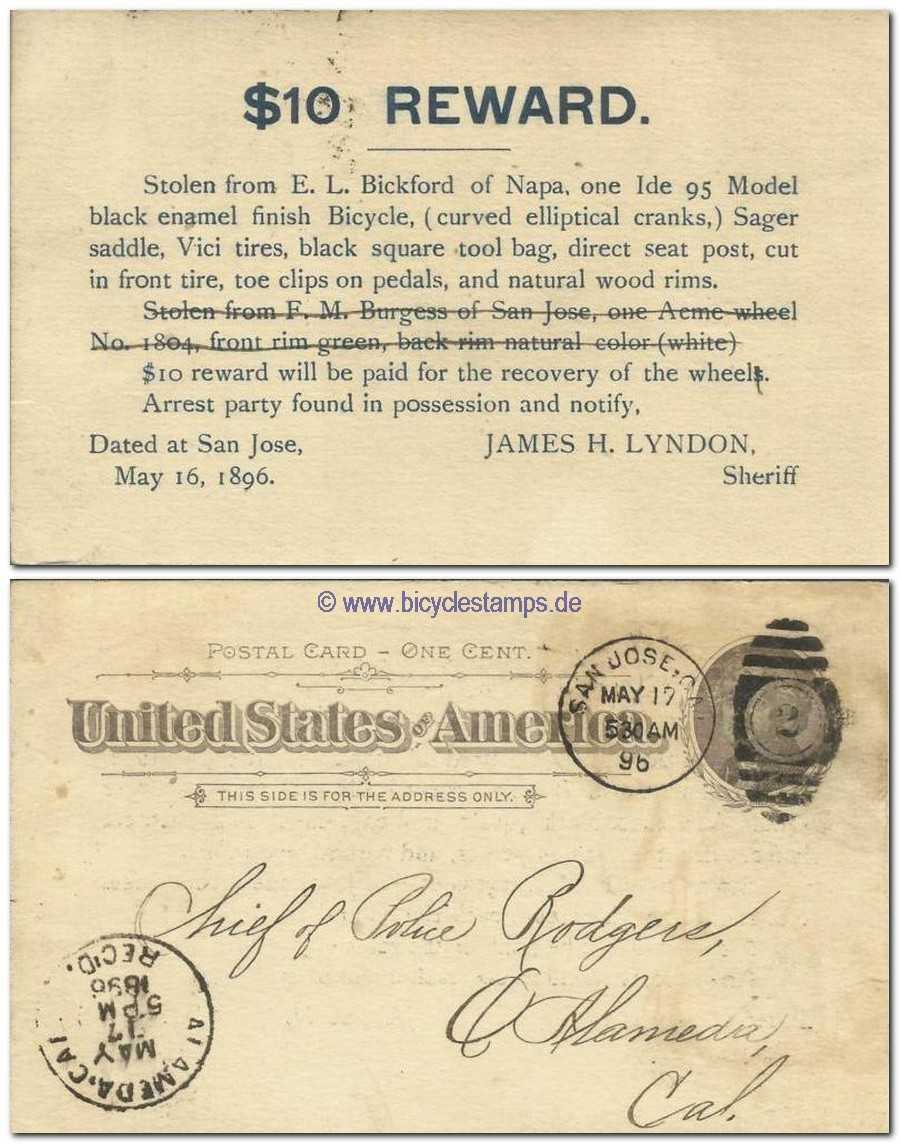 $10 REWARD.
Stolen from E. L. Bickford of Napa, one Ide 95 Model
black enamel finish Bicycle, (curved elliptical cranks,) Sager
saddle, Vici tires, black square tool bag, direct seat post, cut
in front tire, toe clips on pedals, and natural wood rims.
Stolen from F. M. Burgess of San Jose, one Acme wheel
No. 1804, front rim green, back rim natural color (white)
$10 reward will be paid for the recovery of the wheels.
Arrest party found in possession and notify,
Dated at San Jose, JAMES H. LYNDON,
May 16, 1896. Sheriff
© www.bicyclestamps.de
POSTAL CARD - ONE CENT.
United States of America.
THIS SIDE IS FOR THE ADDRESS ONLY.
SAN JOSE, CAL
MAY 17
530AM
96
2
Chief of Police Rodgers,
Alameda,
Cal.
ALAMEDA, CAL
MAY
17
5 PM
1896
REC'D.